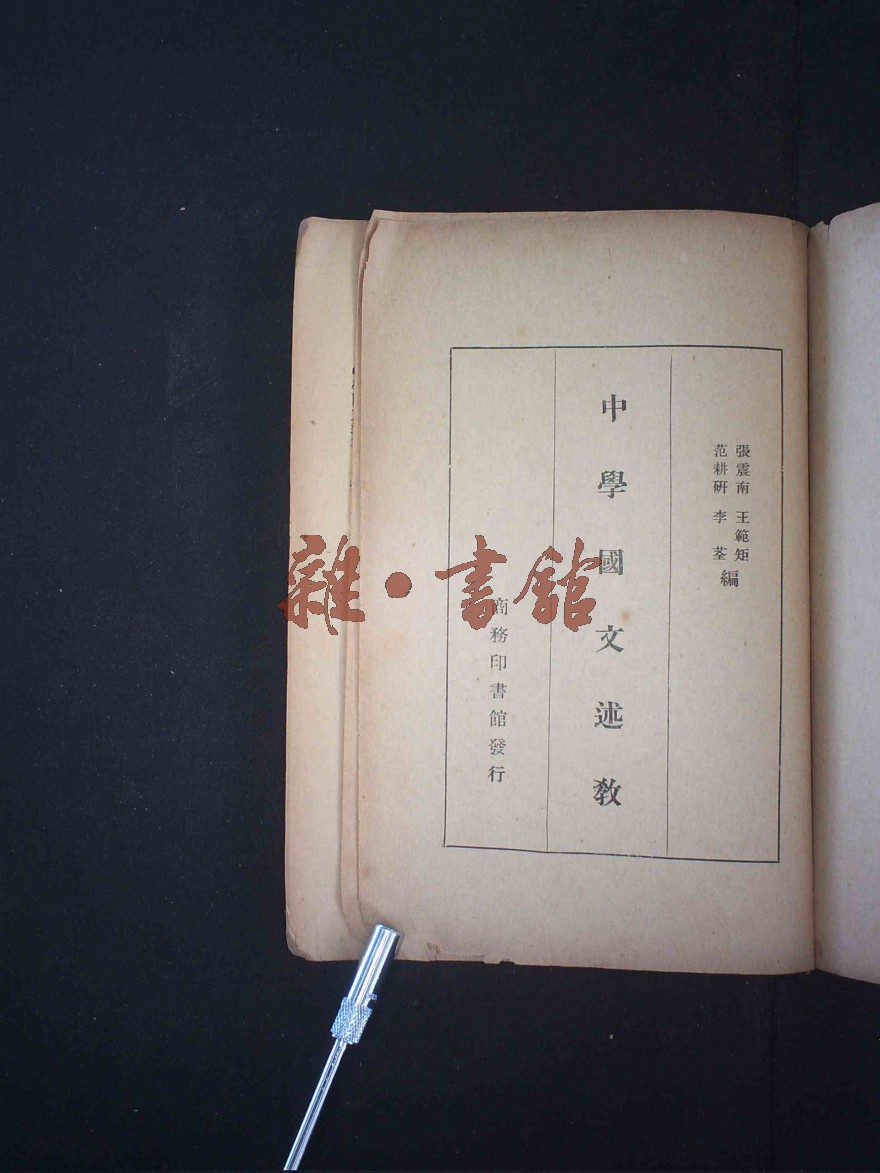 張震南 王範矩
范耕硏 李荃
編
中學國文述教
商務印書館發行
雜·書館